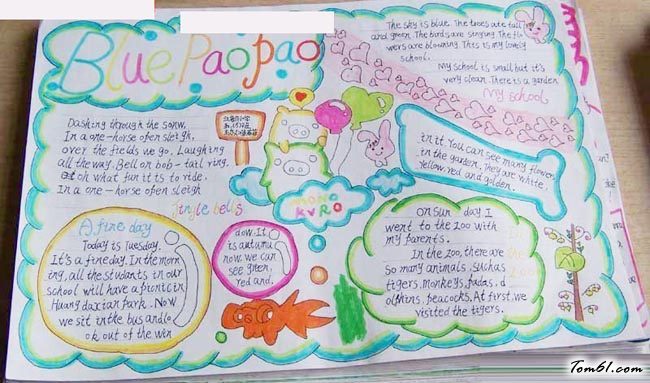 Blue Paopao
The sky is blue. The trees are tall
and green. The birds are singing. The flo
wers are blowning. This is my lovely
school.
My school is small but it's
very clean. There is a garden
My school
in it. You can see many flowers
in the garden. They are white,
Yellow, red and golden.
Dashing through the sonw,
In a one-horse open sleigh,
over the fields we go, Laughing
all the way. Bell on bob-tail ring.
oh what fun it is to ride,
In a one-horse open sleigh
Jingle bells
MONO
KURO
A fine day
Today is Tuesday.
It's a fine day. In the morn
ing, all the students in our
school will have a picnic in
Huang daxian park. Now
we sit in the bus and lo
ok out of the win
dow. It
is autumn
now. we can
see green,
red and.
on sun day I
went to the zoo with
my parents.
In the zoo, there are
so many animals, such as
tigers, monkeys, Padas, d
olphins, peacocks. At first, we
visited the tigers.
Tom61.com